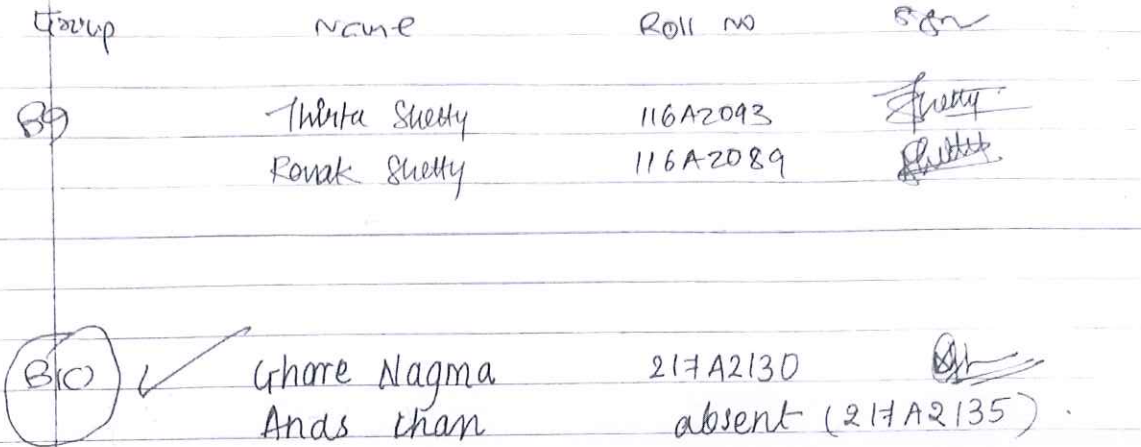 Group Name Roll no Sign
B9 Thirta Shetty 116A2093
Ronak Shetty 116A2089
B10 Ghare Nagma 217A2130
Anas khan absent (217A2135).